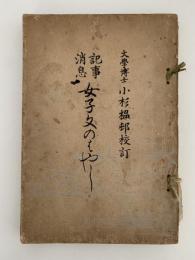 文學博士小杉榲邨校訂
記事
消息
女子文のはやし